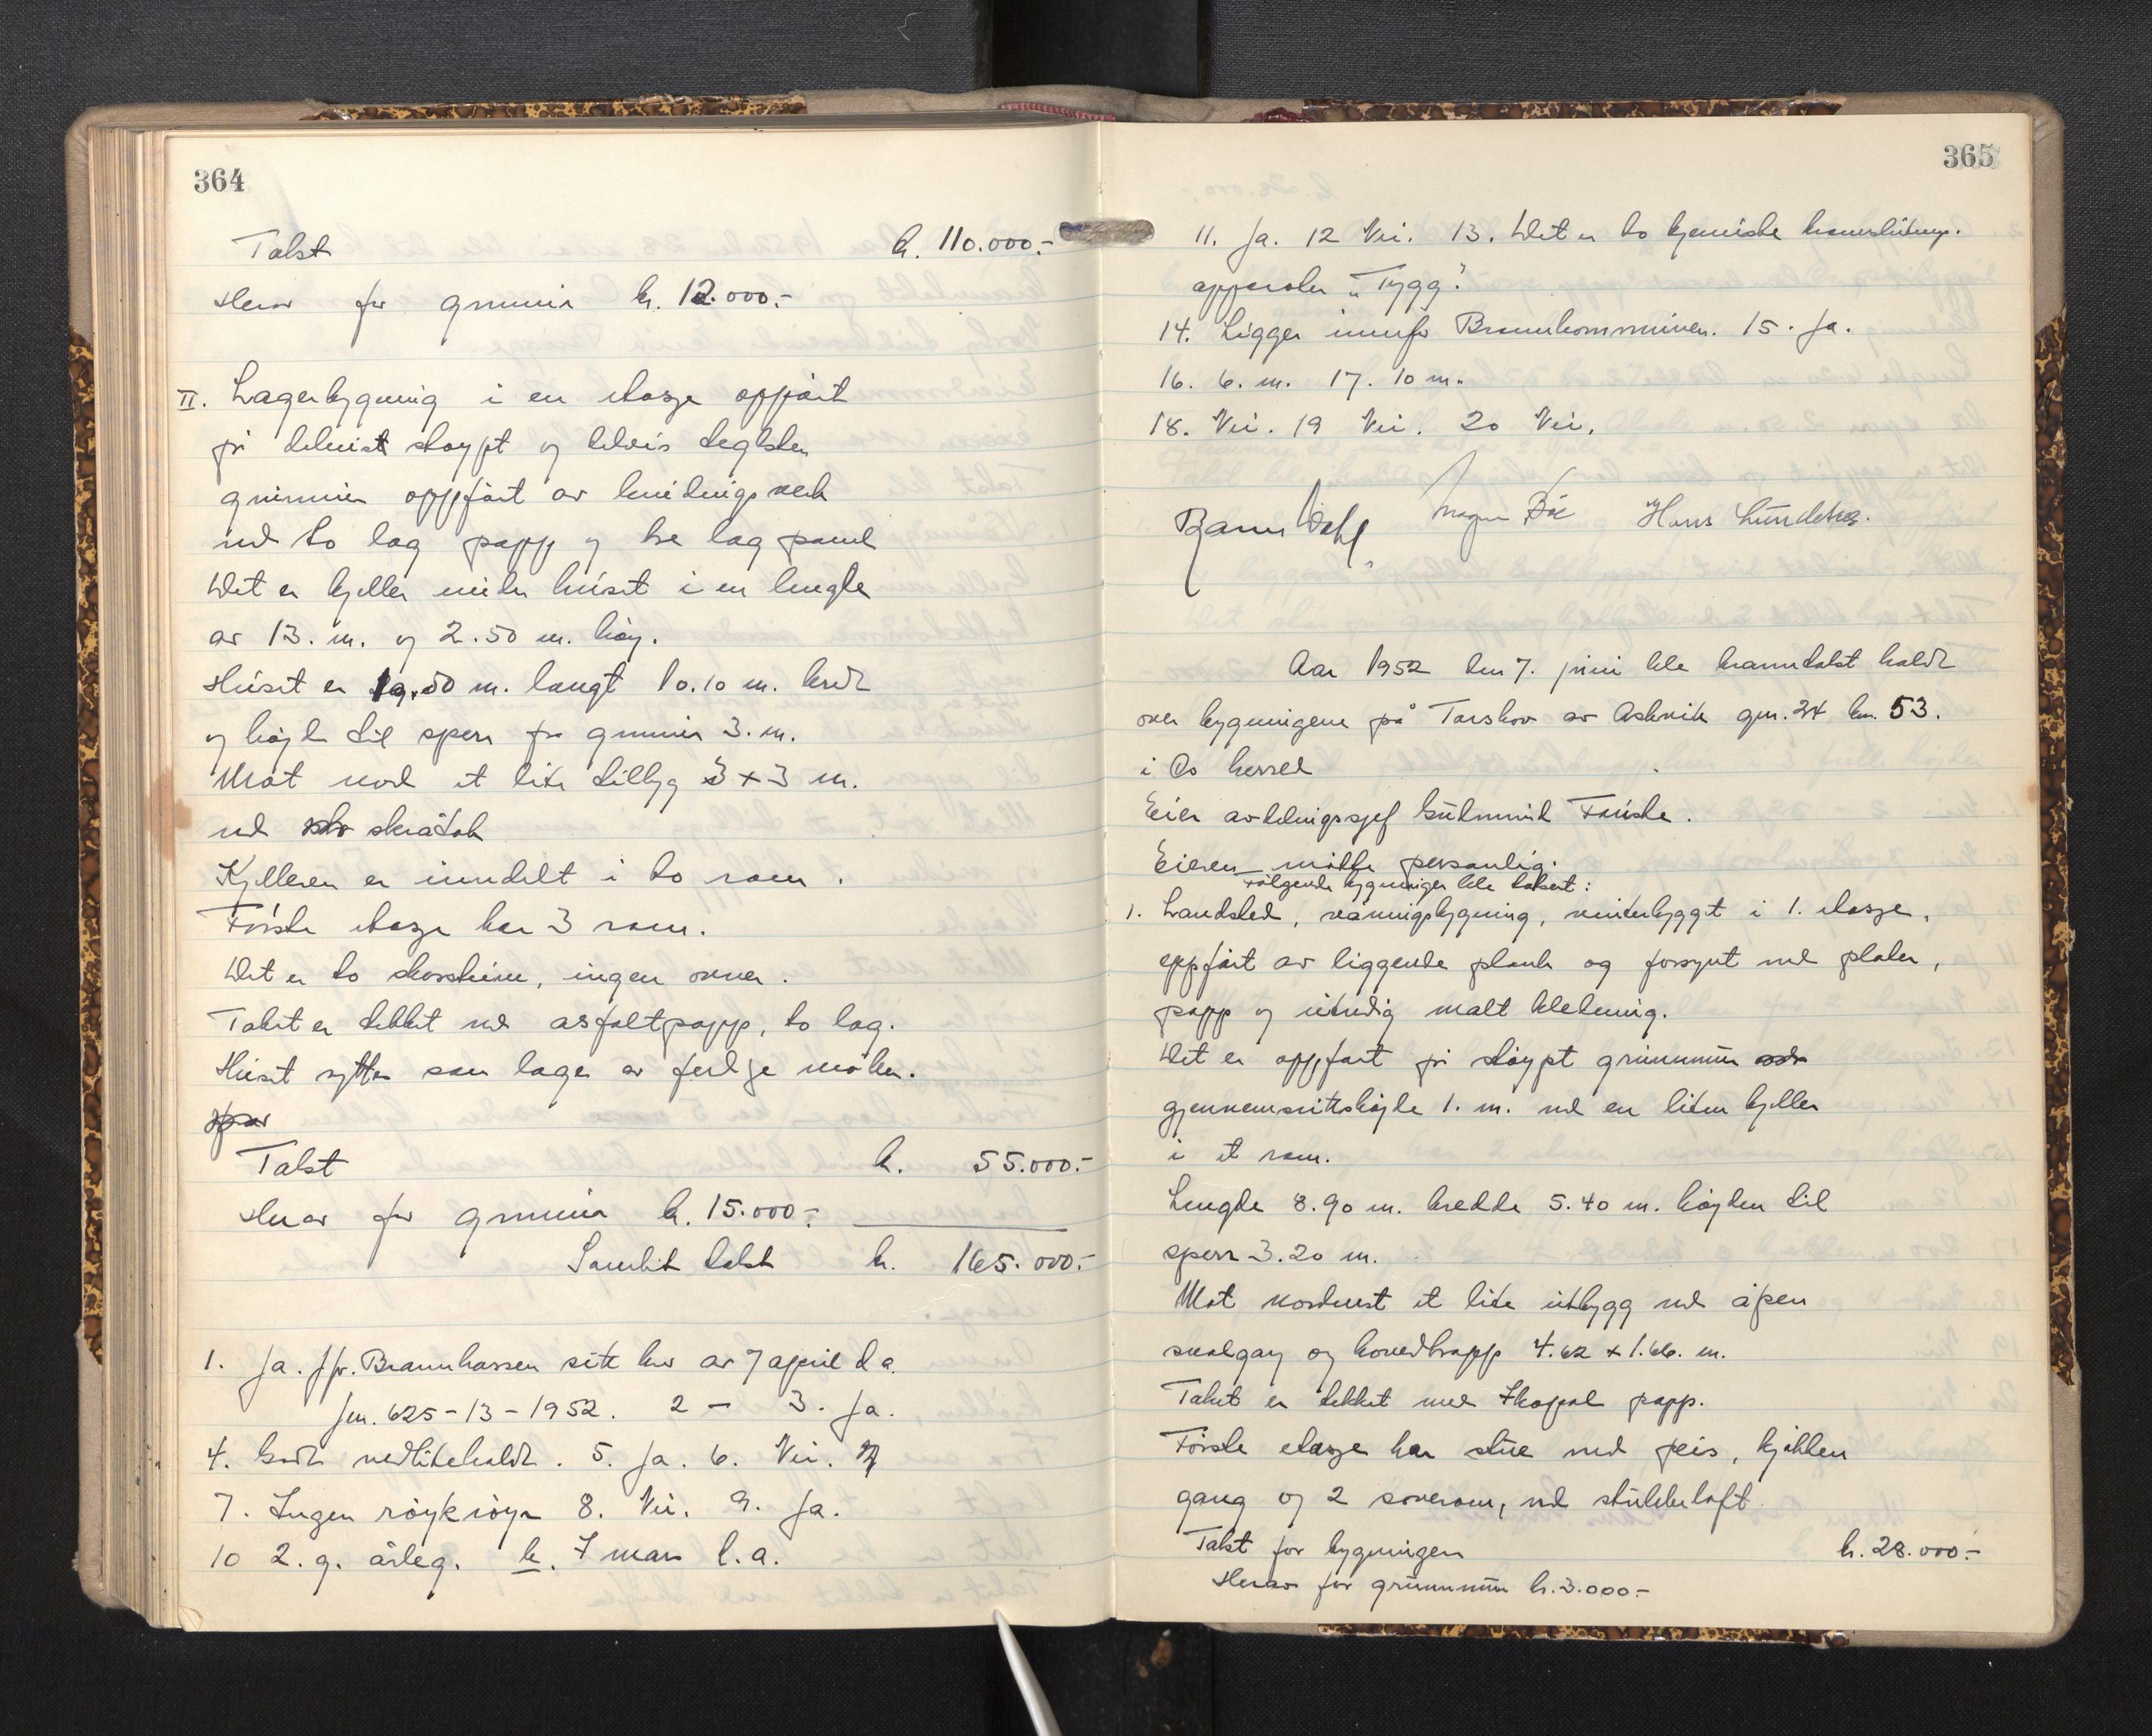 364
Takst k. 110.000.-
Herav for grunnmur k. 12.000.-
II. Lagerbygning i en etasje oppført
på delvist støypt og delvis teglsten
grunnmur oppført av bindingsverk
med to lag papp og tre lag panel
Det er kjeller under huset i en lengde
av 13. m. og 2.50 m. høy.
Huset er 19.50 m. langt 10.10 m. bredt
og højde til sperr fra grunnmur 3. m.
Mot nord et lite tilbyg 3 x 3 m.
med skråtak
Kjelleren er inndelt i to rom.
Første etasje har 3 rom.
Det er to skorsteine, ingen ovner.
Taket er dekket med asfaltpapp, to lag.
Huset nyttes som lager av ferdige møbler.
Takst k. 55.000.-
Herav for grunnmur k. 15.000.-
Samlet takst k. 165.000.-
1. Ja. Jfr. Brannkassen sitt brev av 7 april d.a.
Jnr. 625-13-1952. 2 - 3. Ja.
4. Godt vedlikeholdt. 5. Ja. 6. Nei.
7. Ingen røykrøyr 8. Nei. 9. Ja.
10 2. g. årleg. 7 mars d.a.
365
11. Ja. 12 Nei. 13. Det er to kjemiske brannslukn.
apparater "Trygg".
14. Ligger innafor Brannkommunen. 15. Ja.
16. 6. m. 17. 10 m.
18. Nei. 19 Nei. 20 Nei.
Bjarne Dahl. Magnus Bøe Hans Lundetræ.
Aar 1952 den 7. juni ble branntakst holdt
over bygningene på Torskov av Askvik gnr. 34 bn. 53.
i Os herred
Eier avdelingssjef Gudmund Fauske.
Eieren møtte personlig.
Følgende bygninger ble taksert:
1. Landsted, våningsbygning, vinterbygget i 1. etasje,
oppført av liggende plank og forsynt med plater,
papp og utvendig malt kledning.
Det er oppført på støypt grunnmur
gjennemsnittshøjde 1. m. med en liten kjeller
i et rom.
Lengde 8.90 m. bredde 5.40 m. højden til
sperr 3.20 m.
Mot nordvest et lite utbygg med åpen
svalgang og hovedtrapp 4.62 x 1.66. m.
Taket er dekket med papp.
Første etasje har stue med peis, kjøkken
gang og 2 soverom, med stubbeloft.
Takst for bygningen k. 28.000.-
Herav for grunnmur k. 3.000.-